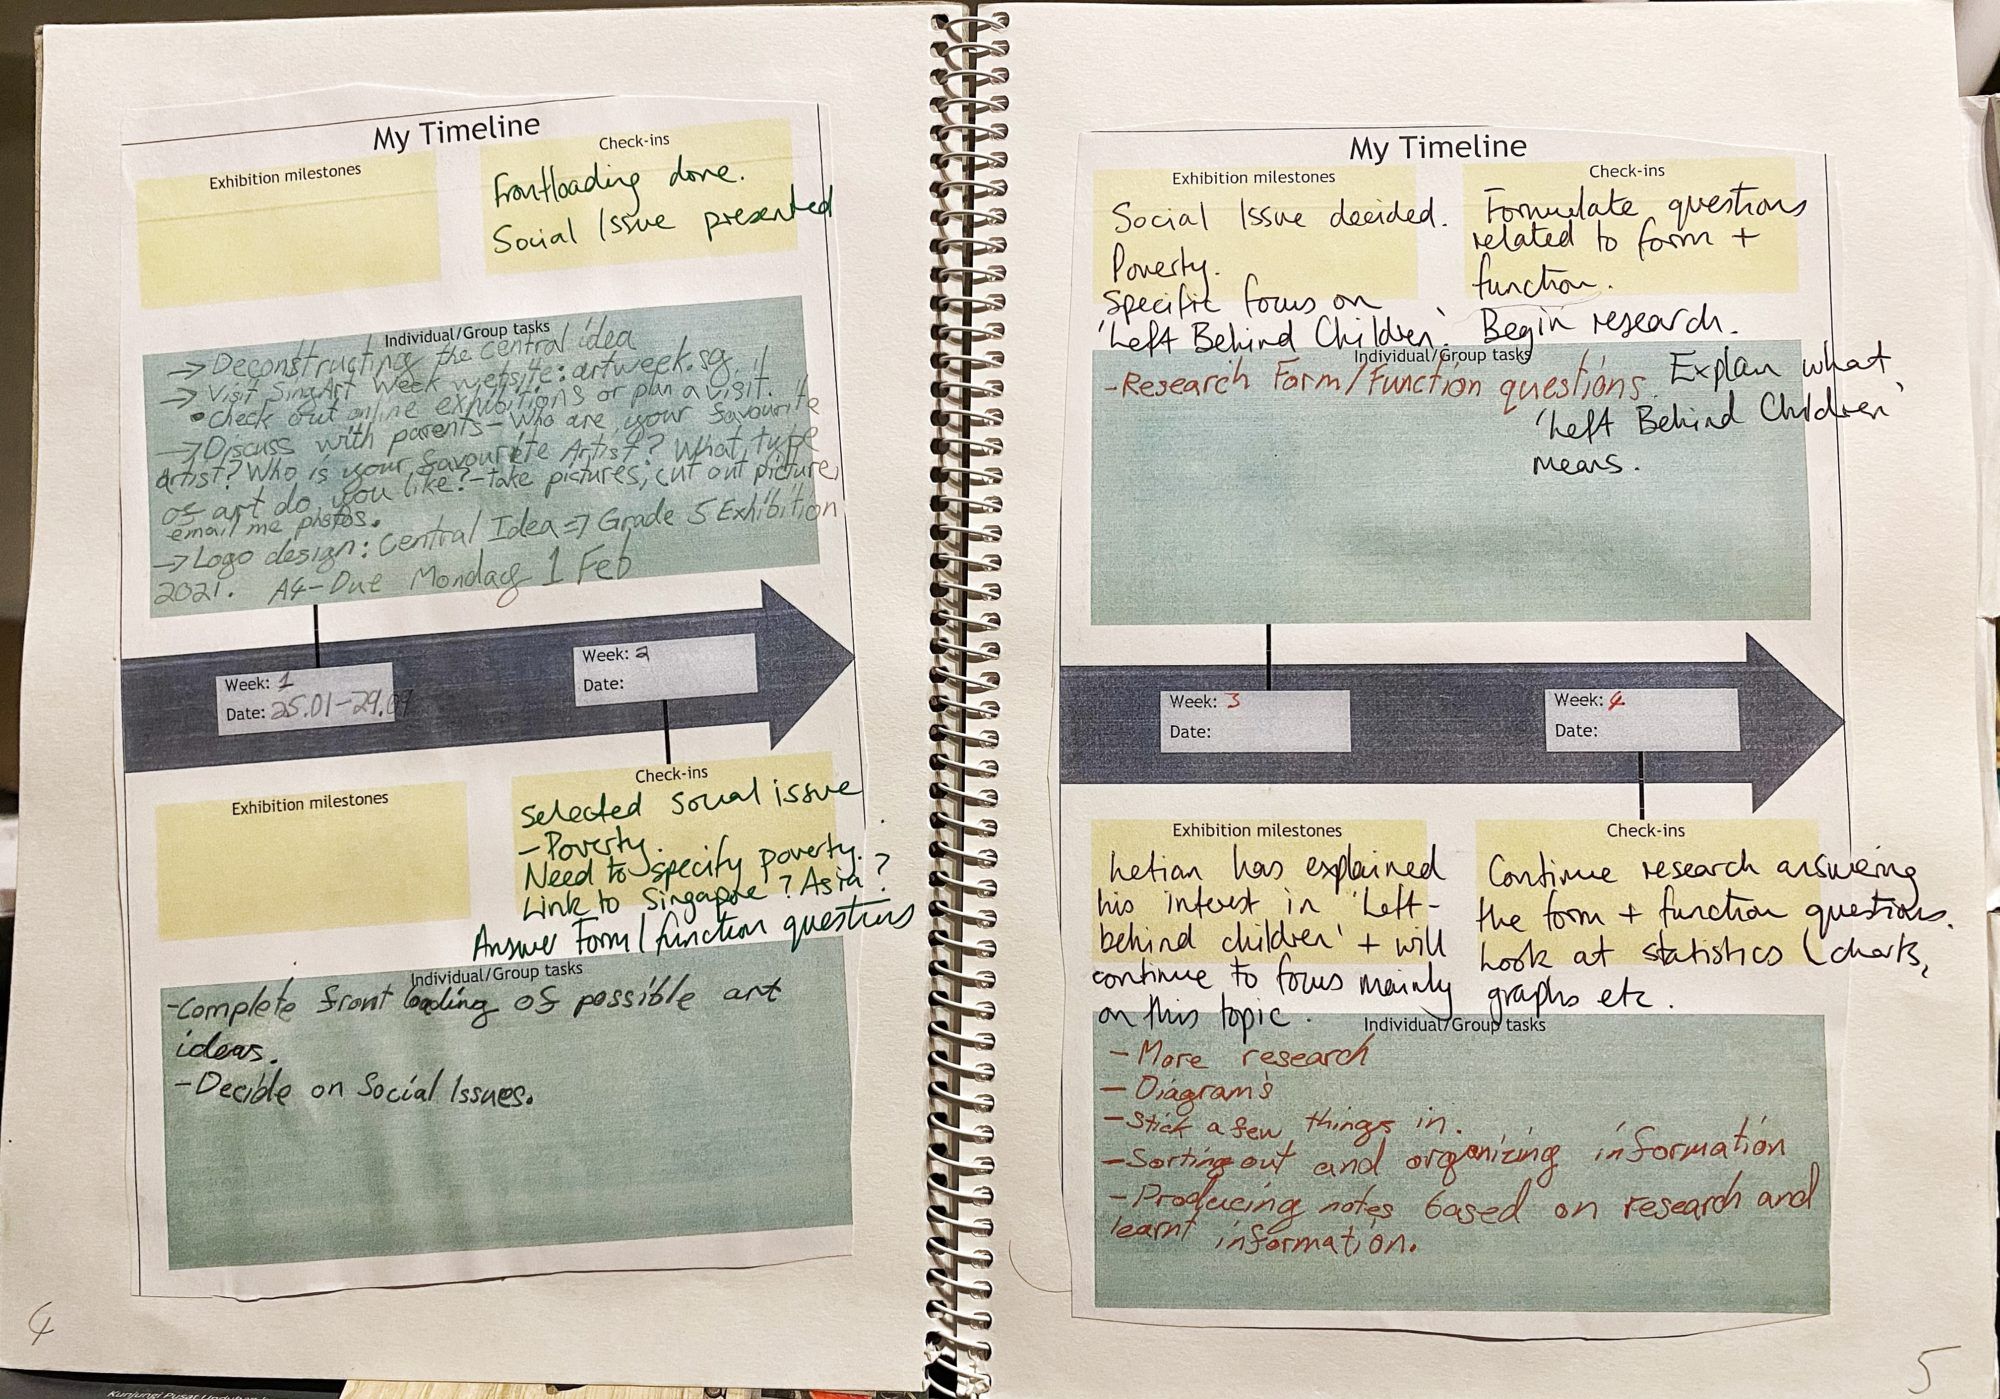 My Timeline
Exhibition milestones
Check-ins
Frontloading done.
Social Issue presented
Individual/Group tasks
→ Deconstructing the Central idea
→ Visit SingArt Week website: artweek.sg.
• Check out online exhibitions or plan a visit.
→ Discuss with parents - Who are your favourite
artist? Who is your favourite Artist? What type
of art do you like? - take pictures, cut out picture,
email me photos.
→ Logo design: Central Idea => Grade 5 Exhibition
2021. A4 - Due Monday 1 Feb
Week: 1
Date: 25.01-29.01
Week: 2
Date:
Exhibition milestones
Check-ins
Selected Social issue
- Poverty.
Need to specify poverty.
Link to Singapore? Asia?
Answer Form/function questions
Individual/Group tasks
- Complete front loading of possible art
ideas.
- Decible on Social Issues.
4
My Timeline
Exhibition milestones
Social Issue decided.
Poverty.
Specific focus on
'Left Behind Children'.
Check-ins
Formulate questions
related to form +
function.
Begin research.
Individual/Group tasks
- Research Form/Function questions.
Explain what
'Left Behind Children'
means.
Week: 3
Date:
Week: 4
Date:
Exhibition milestones
Letian has explained
his interest in 'Left-
behind children' + will
continue to focus mainly
on this topic.
Check-ins
Continue research answering
the form + function questions.
Look at statistics (charts,
graphs etc.
Individual/Group tasks
- More research
- Diagram's
- Stick a few things in.
- Sorting out and organizing information
- Producing notes based on research and
learnt information.
5
Kunjungi Pusat Unduhan